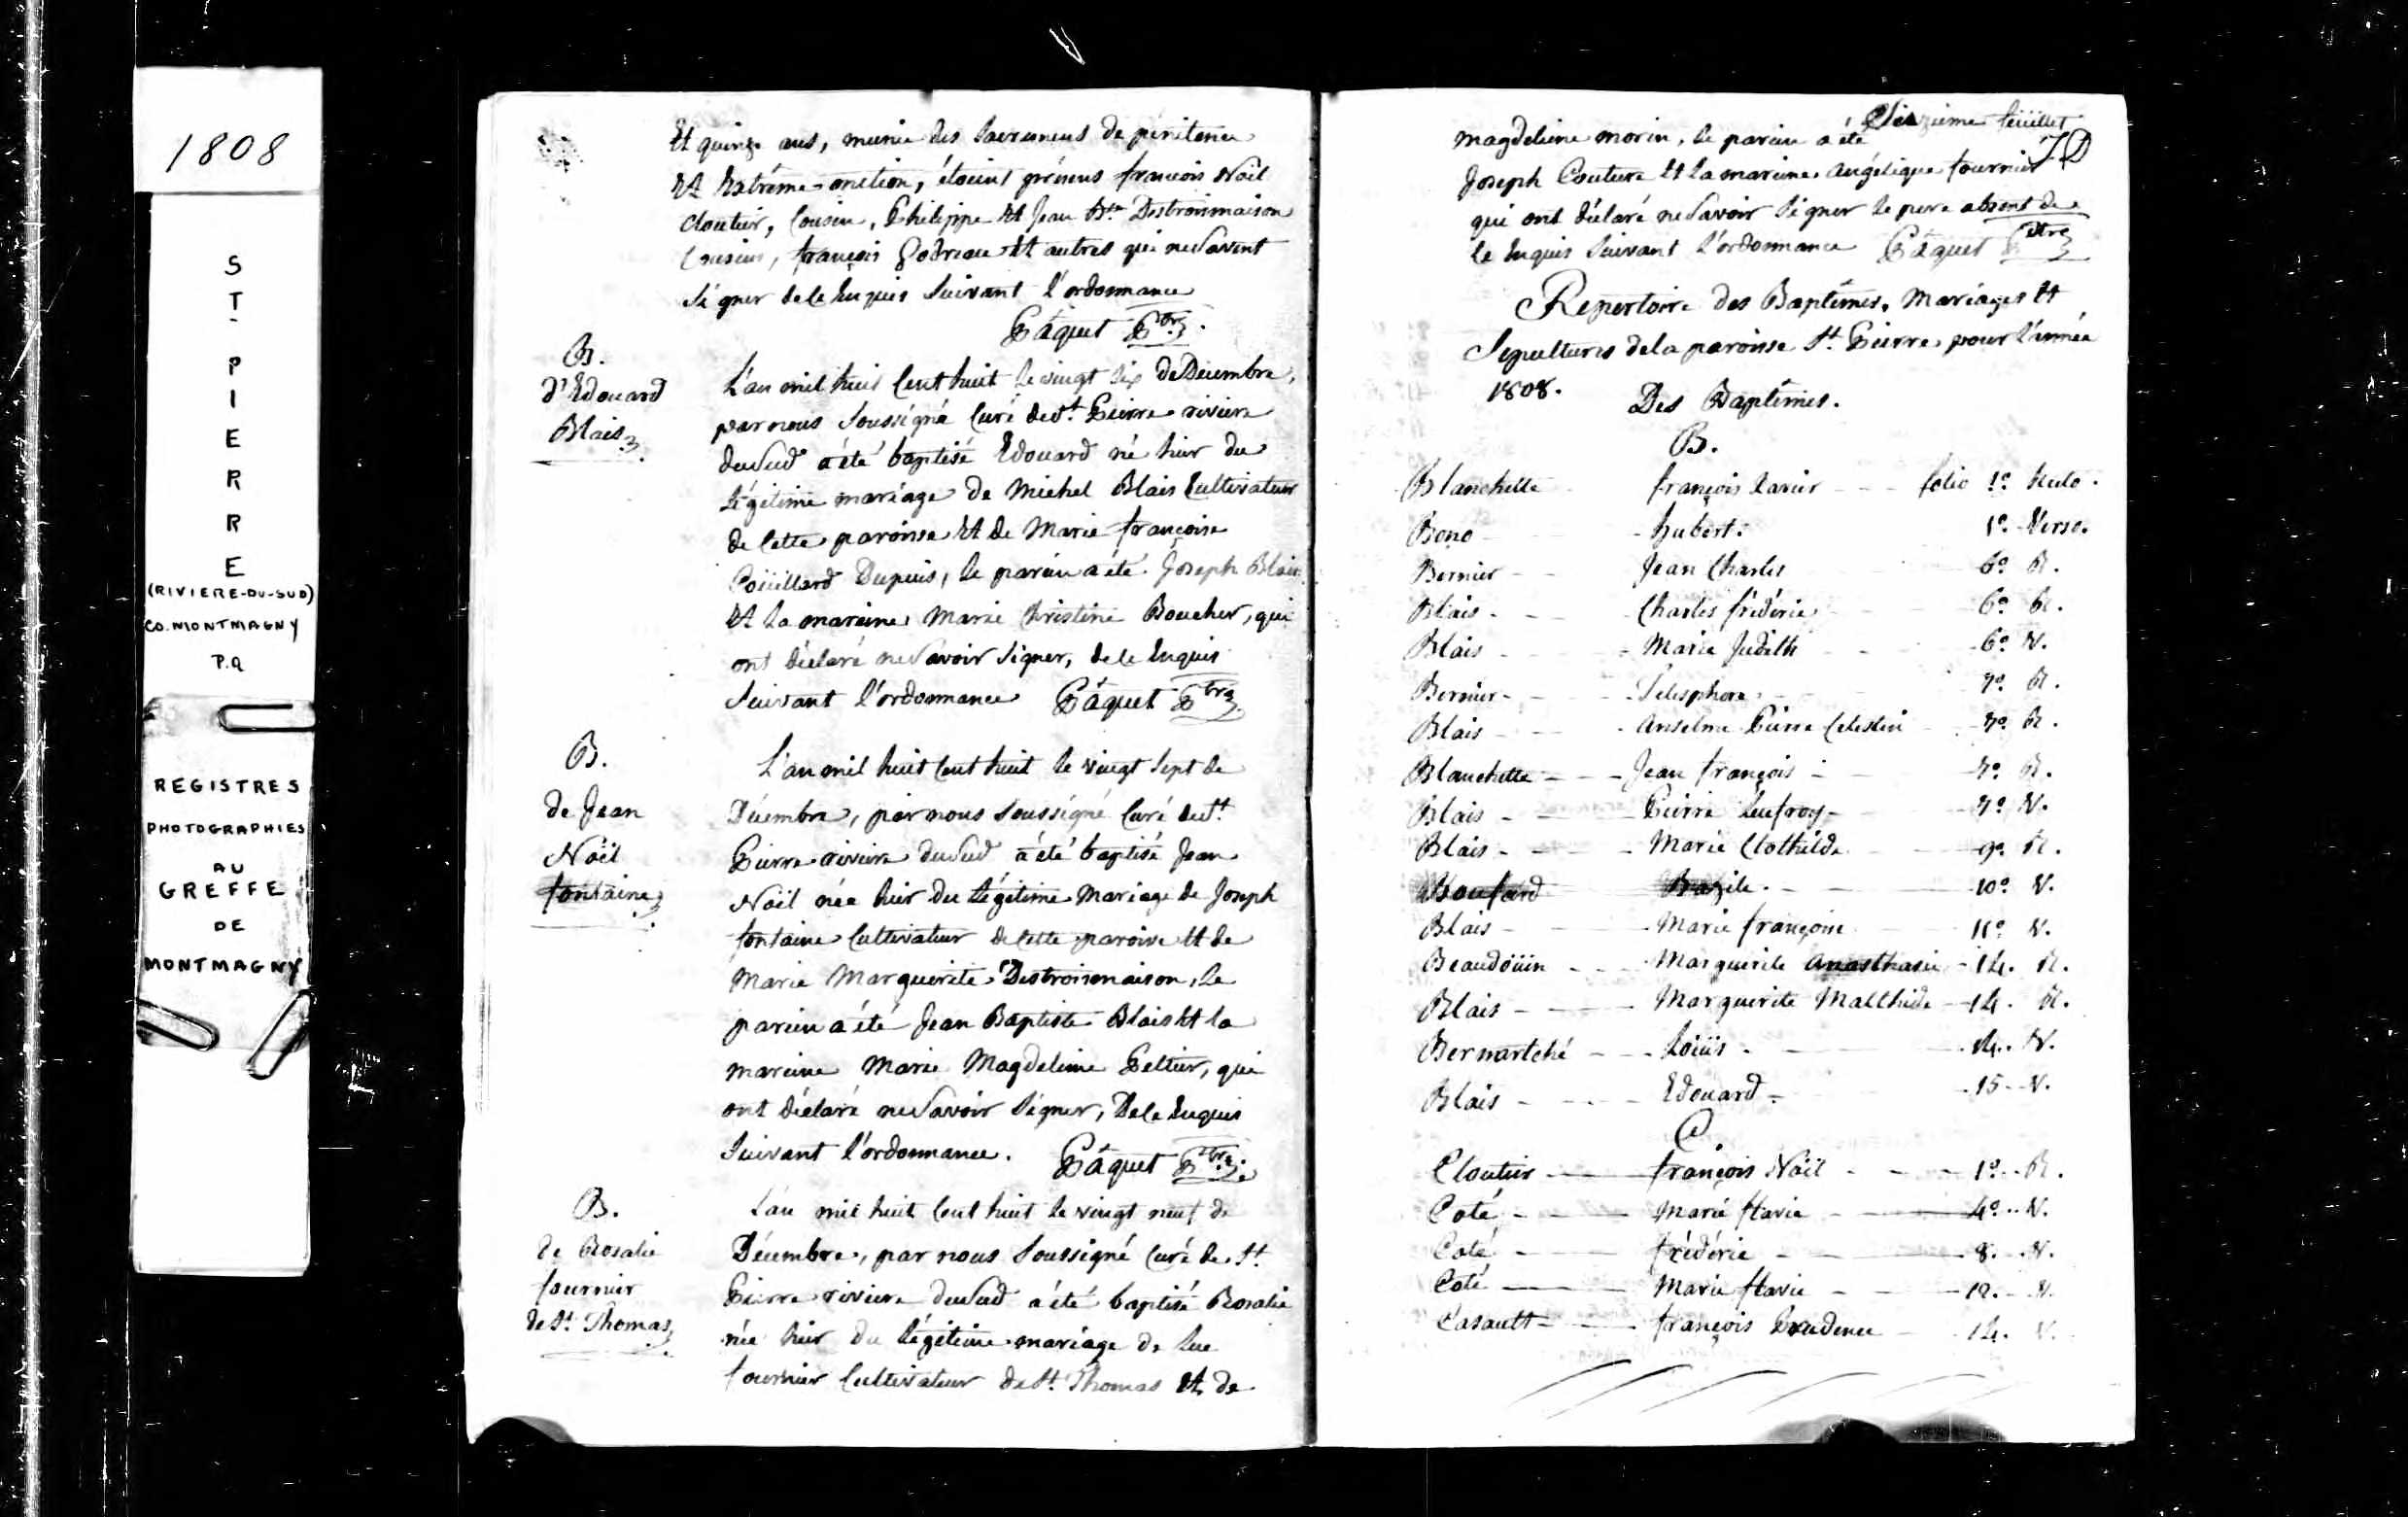 1808
ST-PIERRE
(RIVIERE-DU-SUD)
CO. MONTMAGNY
P.Q
REGISTRES
PHOTOGRAPHIES
AU
GREFFE
DE
MONTMAGNY
Et quinze ans, munie des Sacremens de pénitence
Et Extrême-onction, étoient présens francois Noël
Cloutier, Cousin, Philippe Et Jean Bte Destroismaison
Cousins, françois Godreau Et autres qui ne Savent
Signer de ce Enquis Suivant l'ordonnance
Pâquet Ptre.
B.
d'Edouard
Blais
L'an mil huit Cent huit le vingt Six de Décembre,
par nous Soussigné Curé de St. Pierre riviere
du Sud a été baptisé Edouard né hier du
légitime mariage de Michel Blais Cultivateur
de Cette paroisse Et de Marie françoise
Coüillard Dupuis, le parein a été Joseph Blais
Et la mareine Marie Christine Boucher, qui
ont déclaré ne Savoir Signer, de ce Enquis
Suivant l'ordonnance Pâquet Ptre.
B.
de Jean
Noël
fontaine
L'an mil huit Cent huit le vingt Sept de
Décembre, par nous Soussigné Curé de St.
Pierre riviere du Sud a été baptisé Jean
Noël née hier du légitime Mariage de Joseph
fontaine Cultivateur de Cette paroisse Et de
Marie Marguerite Destroismaison, le
parein a été Jean Baptiste Blais Et la
mareine Marie Magdeleine Peltier, qui
ont déclaré ne Savoir Signer, De ce Enquis
Suivant l'ordonnance. Pâquet Ptre.
B.
de Rosalie
fournier
de St. Thomas
L'an mil huit Cent huit le vingt neuf de
Décembre, par nous Soussigné Curé de St.
Pierre riviere du Sud a été baptisé Rosalie
née hier du légitime mariage de Luc
fournier Cultivateur de St. Thomas Et de
feüillet
JD
Magdeleine morin, le parein a été
Joseph Couture Et la mareine Angélique fournier
qui ont déclaré ne Savoir Signer le pere absent de
ce Enquis Suivant l'ordonnance Pâquet Ptre
Repertoire des Baptêmes, Mariages Et
Sepultures de la paroisse St. Pierre pour l'année
1808.
Des Baptêmes.
B.
Blanchette françois Xavier folio 1º Recto.
Bono hubert. 1º Verso.
Bernier Jean Charles 6º R.
Blais Charles fréderic 6º R.
Blais Marie Judith 6º V.
Bernier Telesphore 7º R.
Blais Anselme Pierre Celestin 7º R.
Blanchette Jean françois 7º R.
Blais Pierre Leufroy 7º V.
Blais Marie Clothilde 9º R.
Boufard Bazile. 10º V.
Blais Marie françoise 11º V.
Beaudoüin Marguerite Anasthasie 14. R.
Blais Marguerite Malthide 14. R.
Bernartché Loüis 14. V.
Blais Edouard 15 V.
C
Cloutier françois Noël 1º R.
Coté Marie flavie 4º V.
Coté fréderic 8. V.
Coté Marie flavie 12. V.
Casault françois Prudence 14. V.